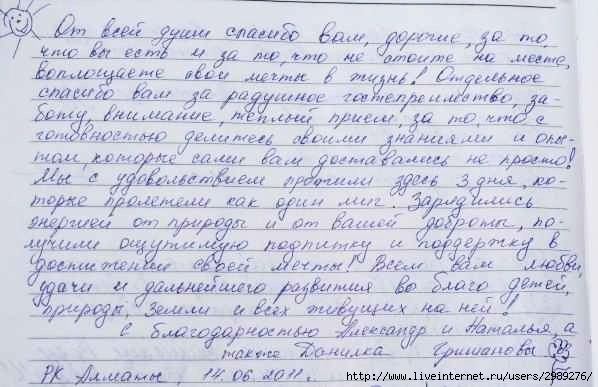 От всей души спасибо вам, дорогие, за то,
что вы есть и за то, что не стоите на месте,
воплощаете свои мечты в жизнь! Отдельное
спасибо вам за радушное гостепреимство, за-
боту, внимание, тёплый прием, за то, что с
готовностью делитесь своими знаниями и опы-
том, которые сами вам доставались не просто!
Мы с удовольствием прожили здесь 3 дня, ко-
торые пролетели как один миг. Зарядились
энергией от природы и от вашей доброты, по-
лучили ощутимую подпитку и поддержку в
достижении своей мечты! Всем вам любви,
удачи и дальнейшего развития во благо детей,
природы, Земли и всех живущих на ней!
С благодарностью Александр и Наталья, а
также Данилка Гришановы
РК Алматы, 14.06.2011г.
http://www.liveinternet.ru/users/2989276/